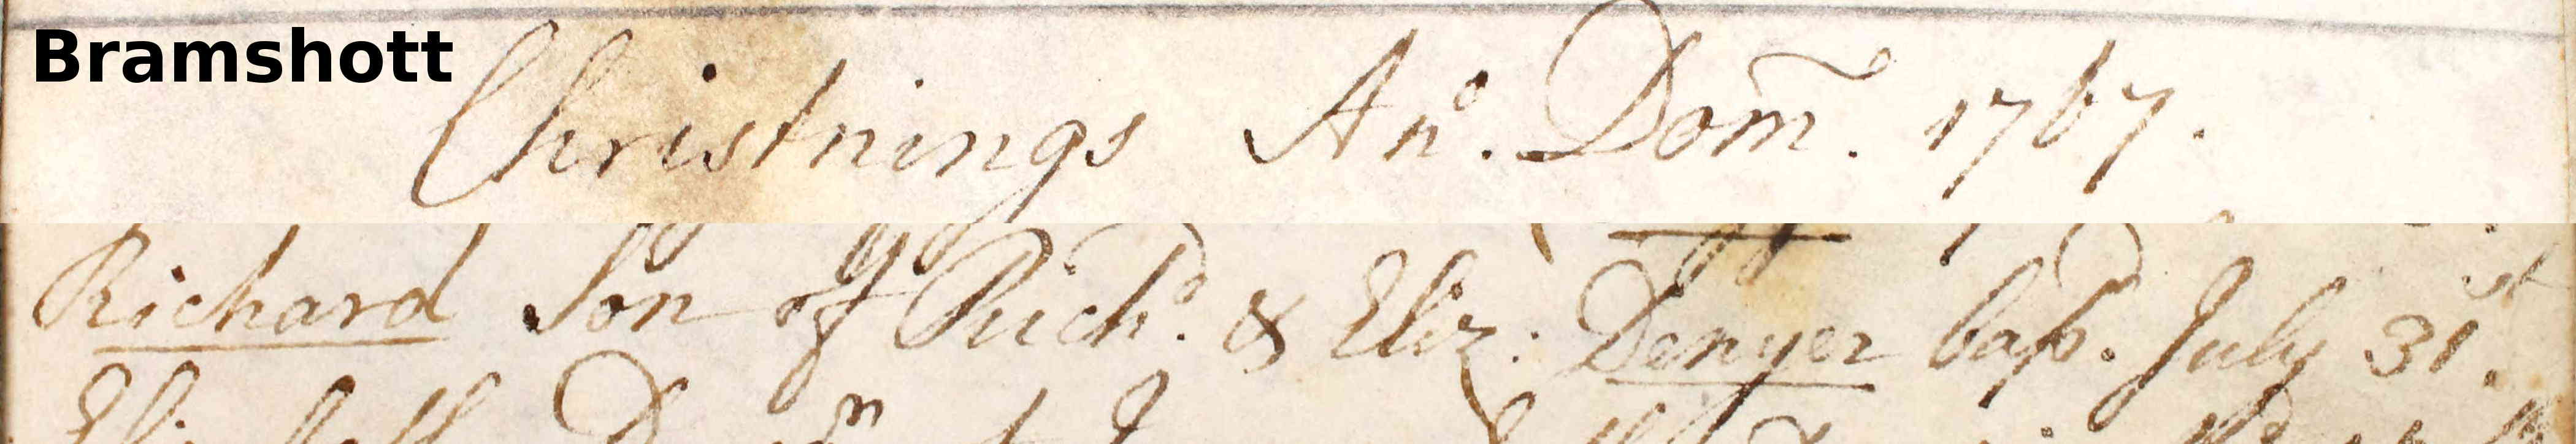 Bramshott
Christnings An°. Dom̃. 1767.
Richard Son of Rich^d. & Eliz: Denyer bap. July 31^st.